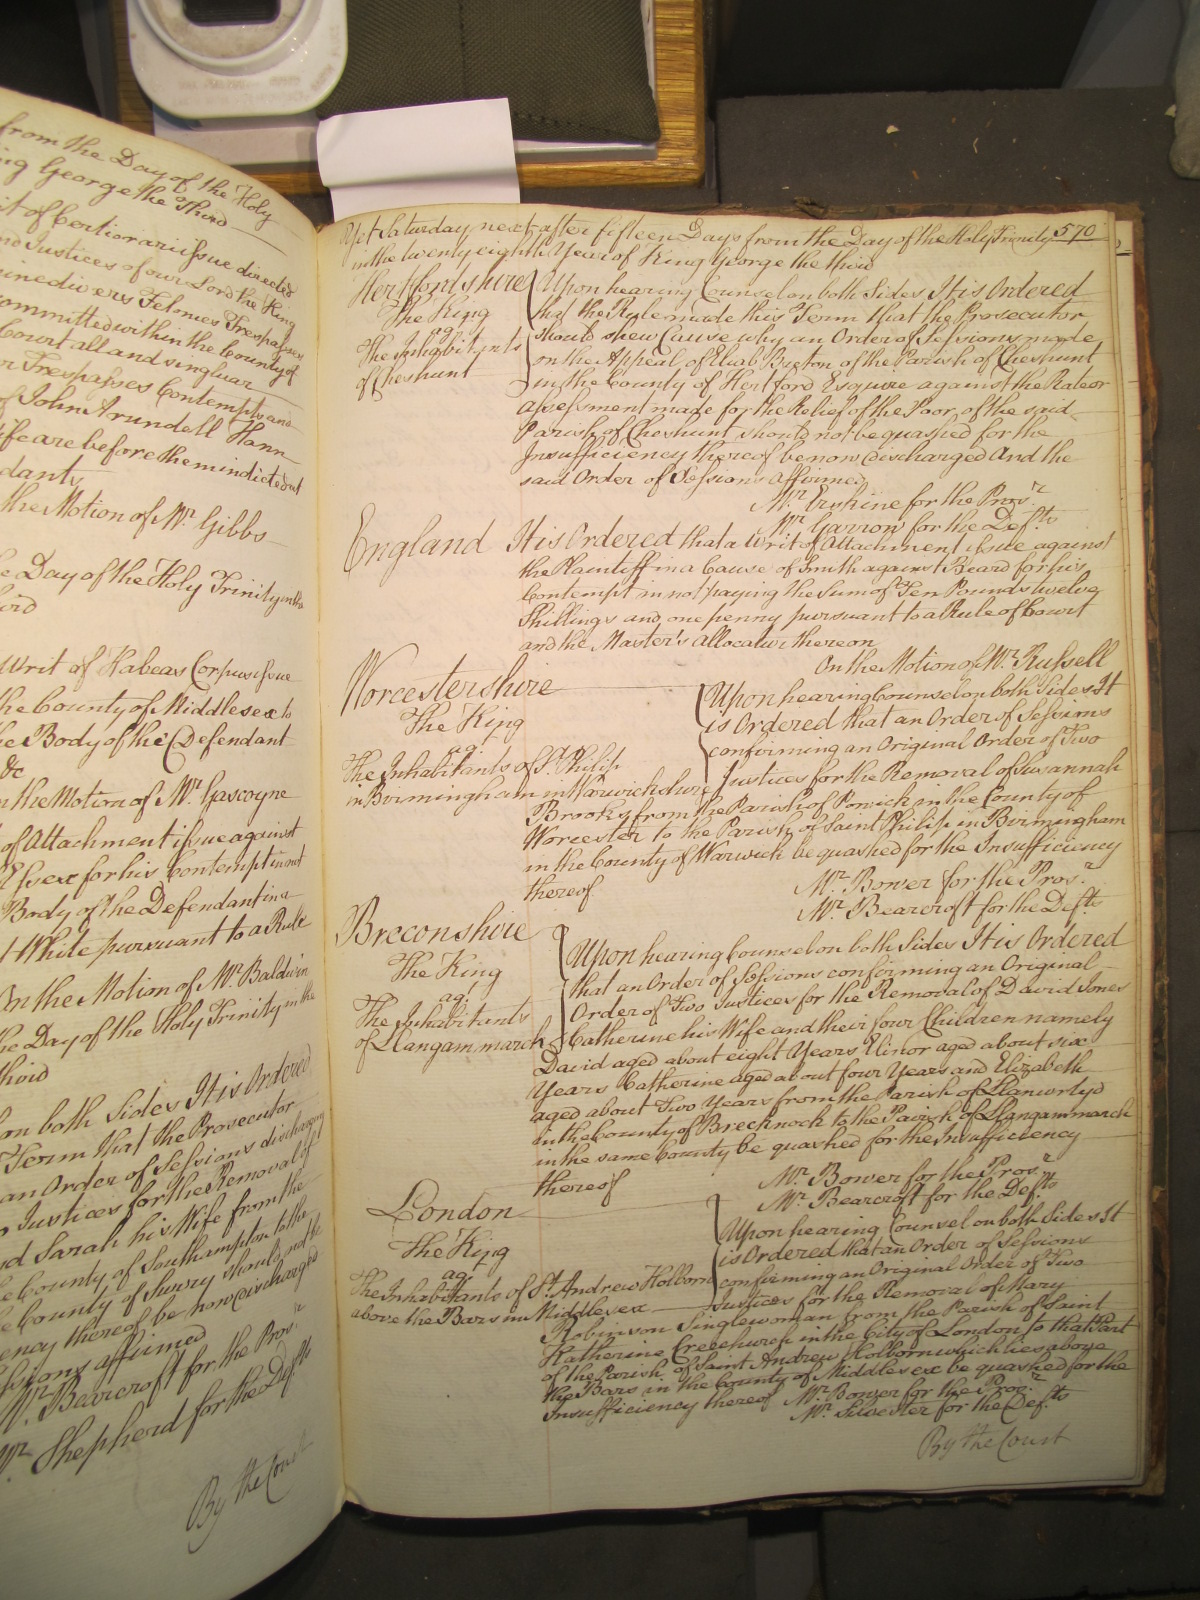 from the Day of the Holy
ing George the Third
it of Certiorari issue directed
nd Justices of our Lord the King
ine divers Felonies Trespasses
committed within the County of
Court all and singular
or Trespasses Contempts and
of John Arundell Hann
ife are before them indicted out
dants
the Motion of Mr. Gibbs
e Day of the Holy Trinity in the
hird
Writ of Habeas Corpus issue
the County of Middlesex to
he Body of the Defendant
&c
n the Motion of Mr. Gascoyne
of Attachment issue against
Essex for his Contempt in not
Body of the Defendant in a
t White pursuant to a Rule
On the Motion of Mr. Baldwin
he Day of the Holy Trinity in the
hird
on both Sides It is Ordered
Term that the Prosecutor
an Order of Sessions discharging
o Justices for the Removal of
nd Sarah his Wife from the
e County of Southampton to the
e County of Surry should not be
ency thereof be now discharged
essions affirmed
Mr. Bearcroft for the Pros.r
Mr. Shepherd for the Def.ts
By the Court
Yet Saturday next after fifteen Days from the Day of the Holy Trinity 570
in the twenty eighth Year of King George the third
Hertfordshire Upon hearing Counsel on both Sides It is Ordered
The King that the Rule made this Term that the Prosecutor
ag.t should shew Cause why an Order of Sessions made
The Inhabitants on the Appeal of Eliab Breton of the Parish of Cheshunt
of Cheshunt in the County of Hertford Esquire against the Rate or
Assessment made for the Relief of the Poor of the said
Parish of Cheshunt should not be quashed for the
Insufficiency thereof be now discharged And the
said Order of Sessions affirmed
Mr. Erskine for the Pros.r
Mr. Garrow for the Def.ts
England It is Ordered that a Writ of Attachment issue against
the Plaintiff in a Cause of Smith against Beard for his
Contempt in not paying the Sum of Ten Pounds twelve
Shillings and one penny pursuant to a Rule of Court
and the Master's allocatur thereon
On the Motion of Mr. Russell
Worcestershire Upon hearing Counsel on both Sides It
The King is Ordered that an Order of Sessions
ag.t confirming an Original Order of Two
The Inhabitants of St. Philip Justices for the Removal of Susannah
in Birmingham in Warwickshire Brooks from the Parish of Powick in the County of
Worcester to the Parish of Saint Philip in Birmingham
in the County of Warwick be quashed for the Insufficiency
thereof Mr. Bower for the Pros.r
Mr. Bearcroft for the Def.ts
Breconshire Upon hearing Counsel on both Sides It is Ordered
The King that an Order of Sessions confirming an Original
ag.t Order of Two Justices for the Removal of David Jones
The Inhabitants Catherine his Wife and their four Children namely
of Llangammarch David aged about eight Years Elinor aged about six
Years Catherine aged about four Years and Elizabeth
aged about Two Years from the Parish of Llanwrtyd
in the County of Brecknock to the Parish of Llangammarch
in the same County be quashed for the Insufficiency
thereof Mr. Bower for the Pros.r
Mr. Bearcroft for the Def.ts
London Upon hearing Counsel on both Sides It
The King is Ordered that an Order of Sessions
ag.t confirming an Original Order of Two
The Inhabitants of St. Andrew Holborn Justices for the Removal of Mary
above the Bars in Middlesex Robinson Singlewoman from the Parish of Saint
Katherine Creechurch in the City of London to that Part
of the Parish of Saint Andrew Holborn which lies above
the Bars in the County of Middlesex be quashed for the
Insufficiency thereof Mr. Bower for the Pros.r
Mr. Silvester for the Def.ts
By the Court